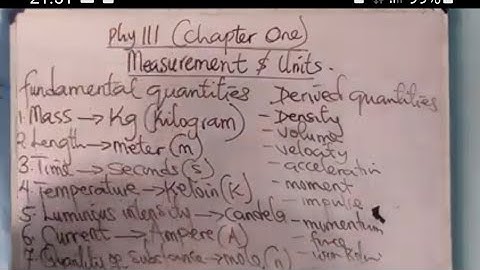 Phy 111 (Chapter One)
Measurement & Units.
fundamental quantities
1. Mass → Kg (Kilogram)
2. Length → meter (m)
3. Time → seconds (s)
4. Temperature → Kelvin (K)
5. Luminous intensity → candela
6. Current → Ampere (A)
7. Quantity of substance → mole (n)
Derived quantities
- Density
- Volume
- velocity
- acceleration
- moment
- impulse
- momentum
- force